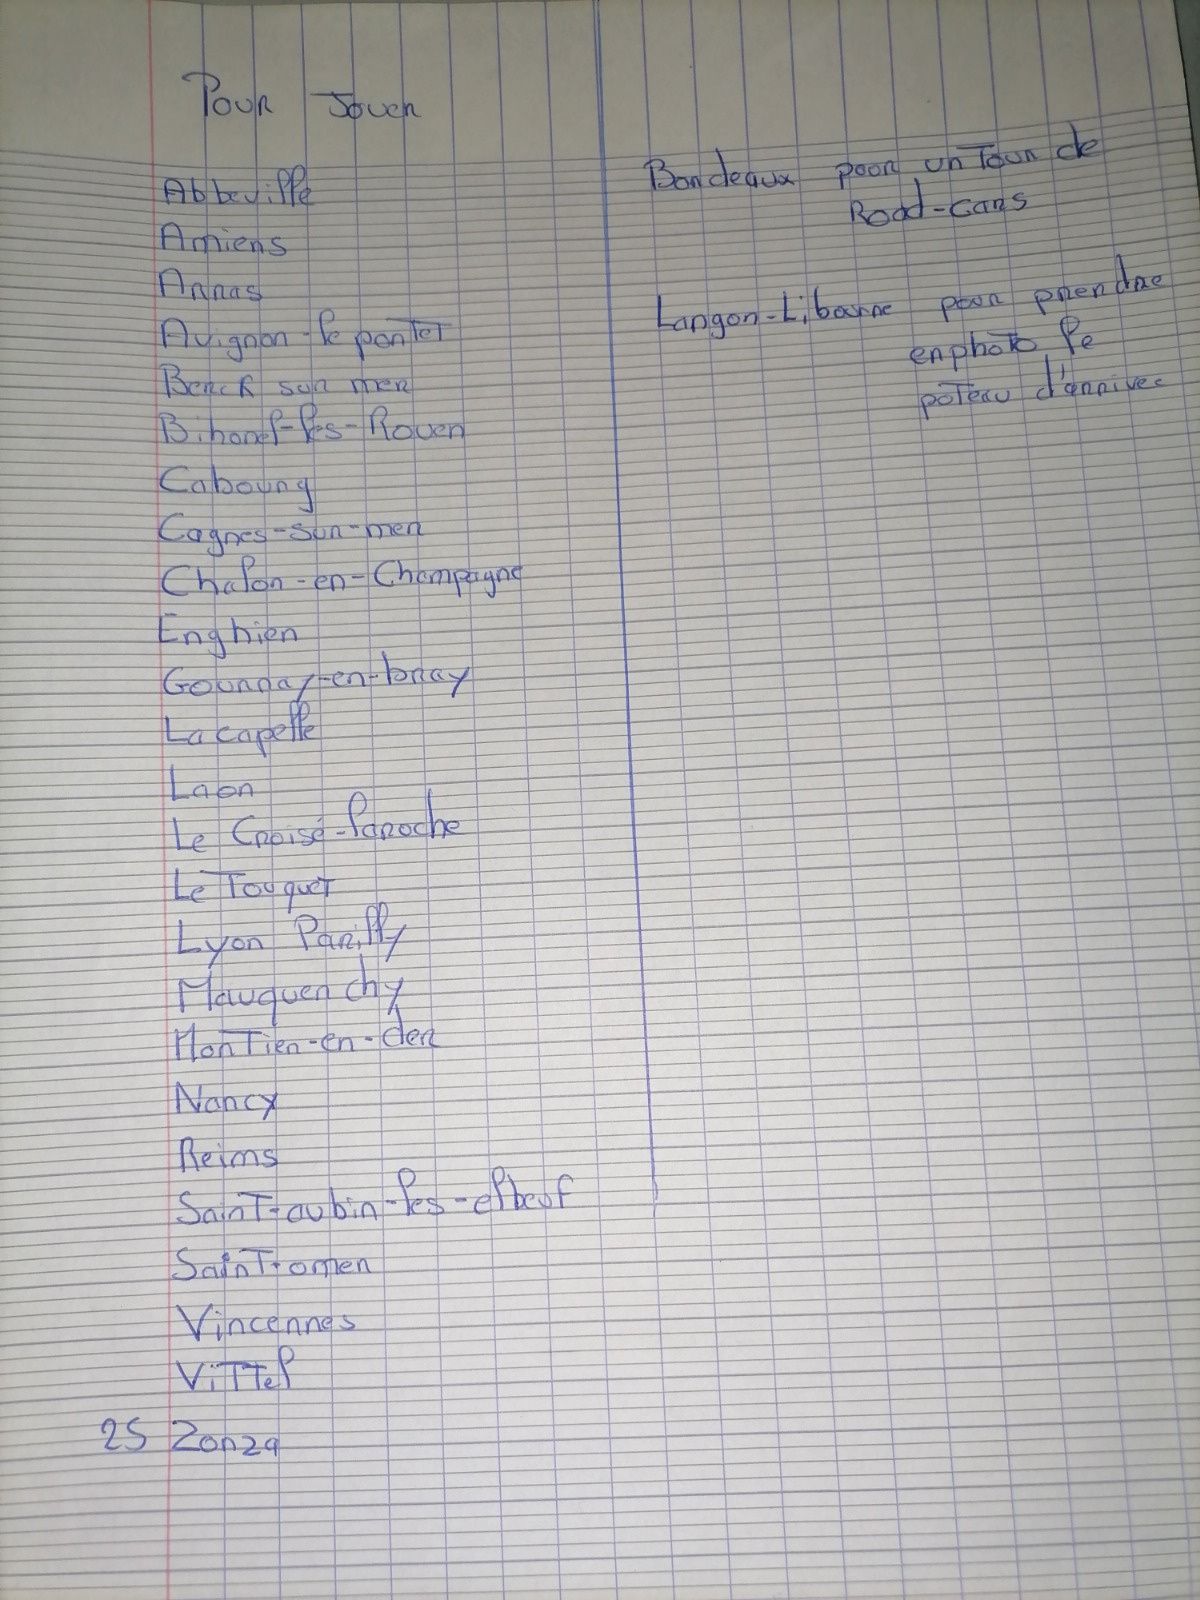 Pour Jouer
Abbeville
Amiens
Arras
Avignon-le pontet
Berck sur mer
Bihorel-les-Rouen
Cabourg
Cagnes-sur-mer
Chalon-en-Champagne
Enghien
Gournay-en-bray
La capelle
Laon
Le Croisé-Laroche
Le Touquet
Lyon Parilly
Mauquenchy
Montier-en-der
Nancy
Reims
Saint-aubin-les-elbeuf
Saint-omer
Vincennes
Vittel
25 Zonza
Bordeaux pour un Tour de
Road-cars
Langon-Libourne pour prendre
en photo le
poteau d'arrivée